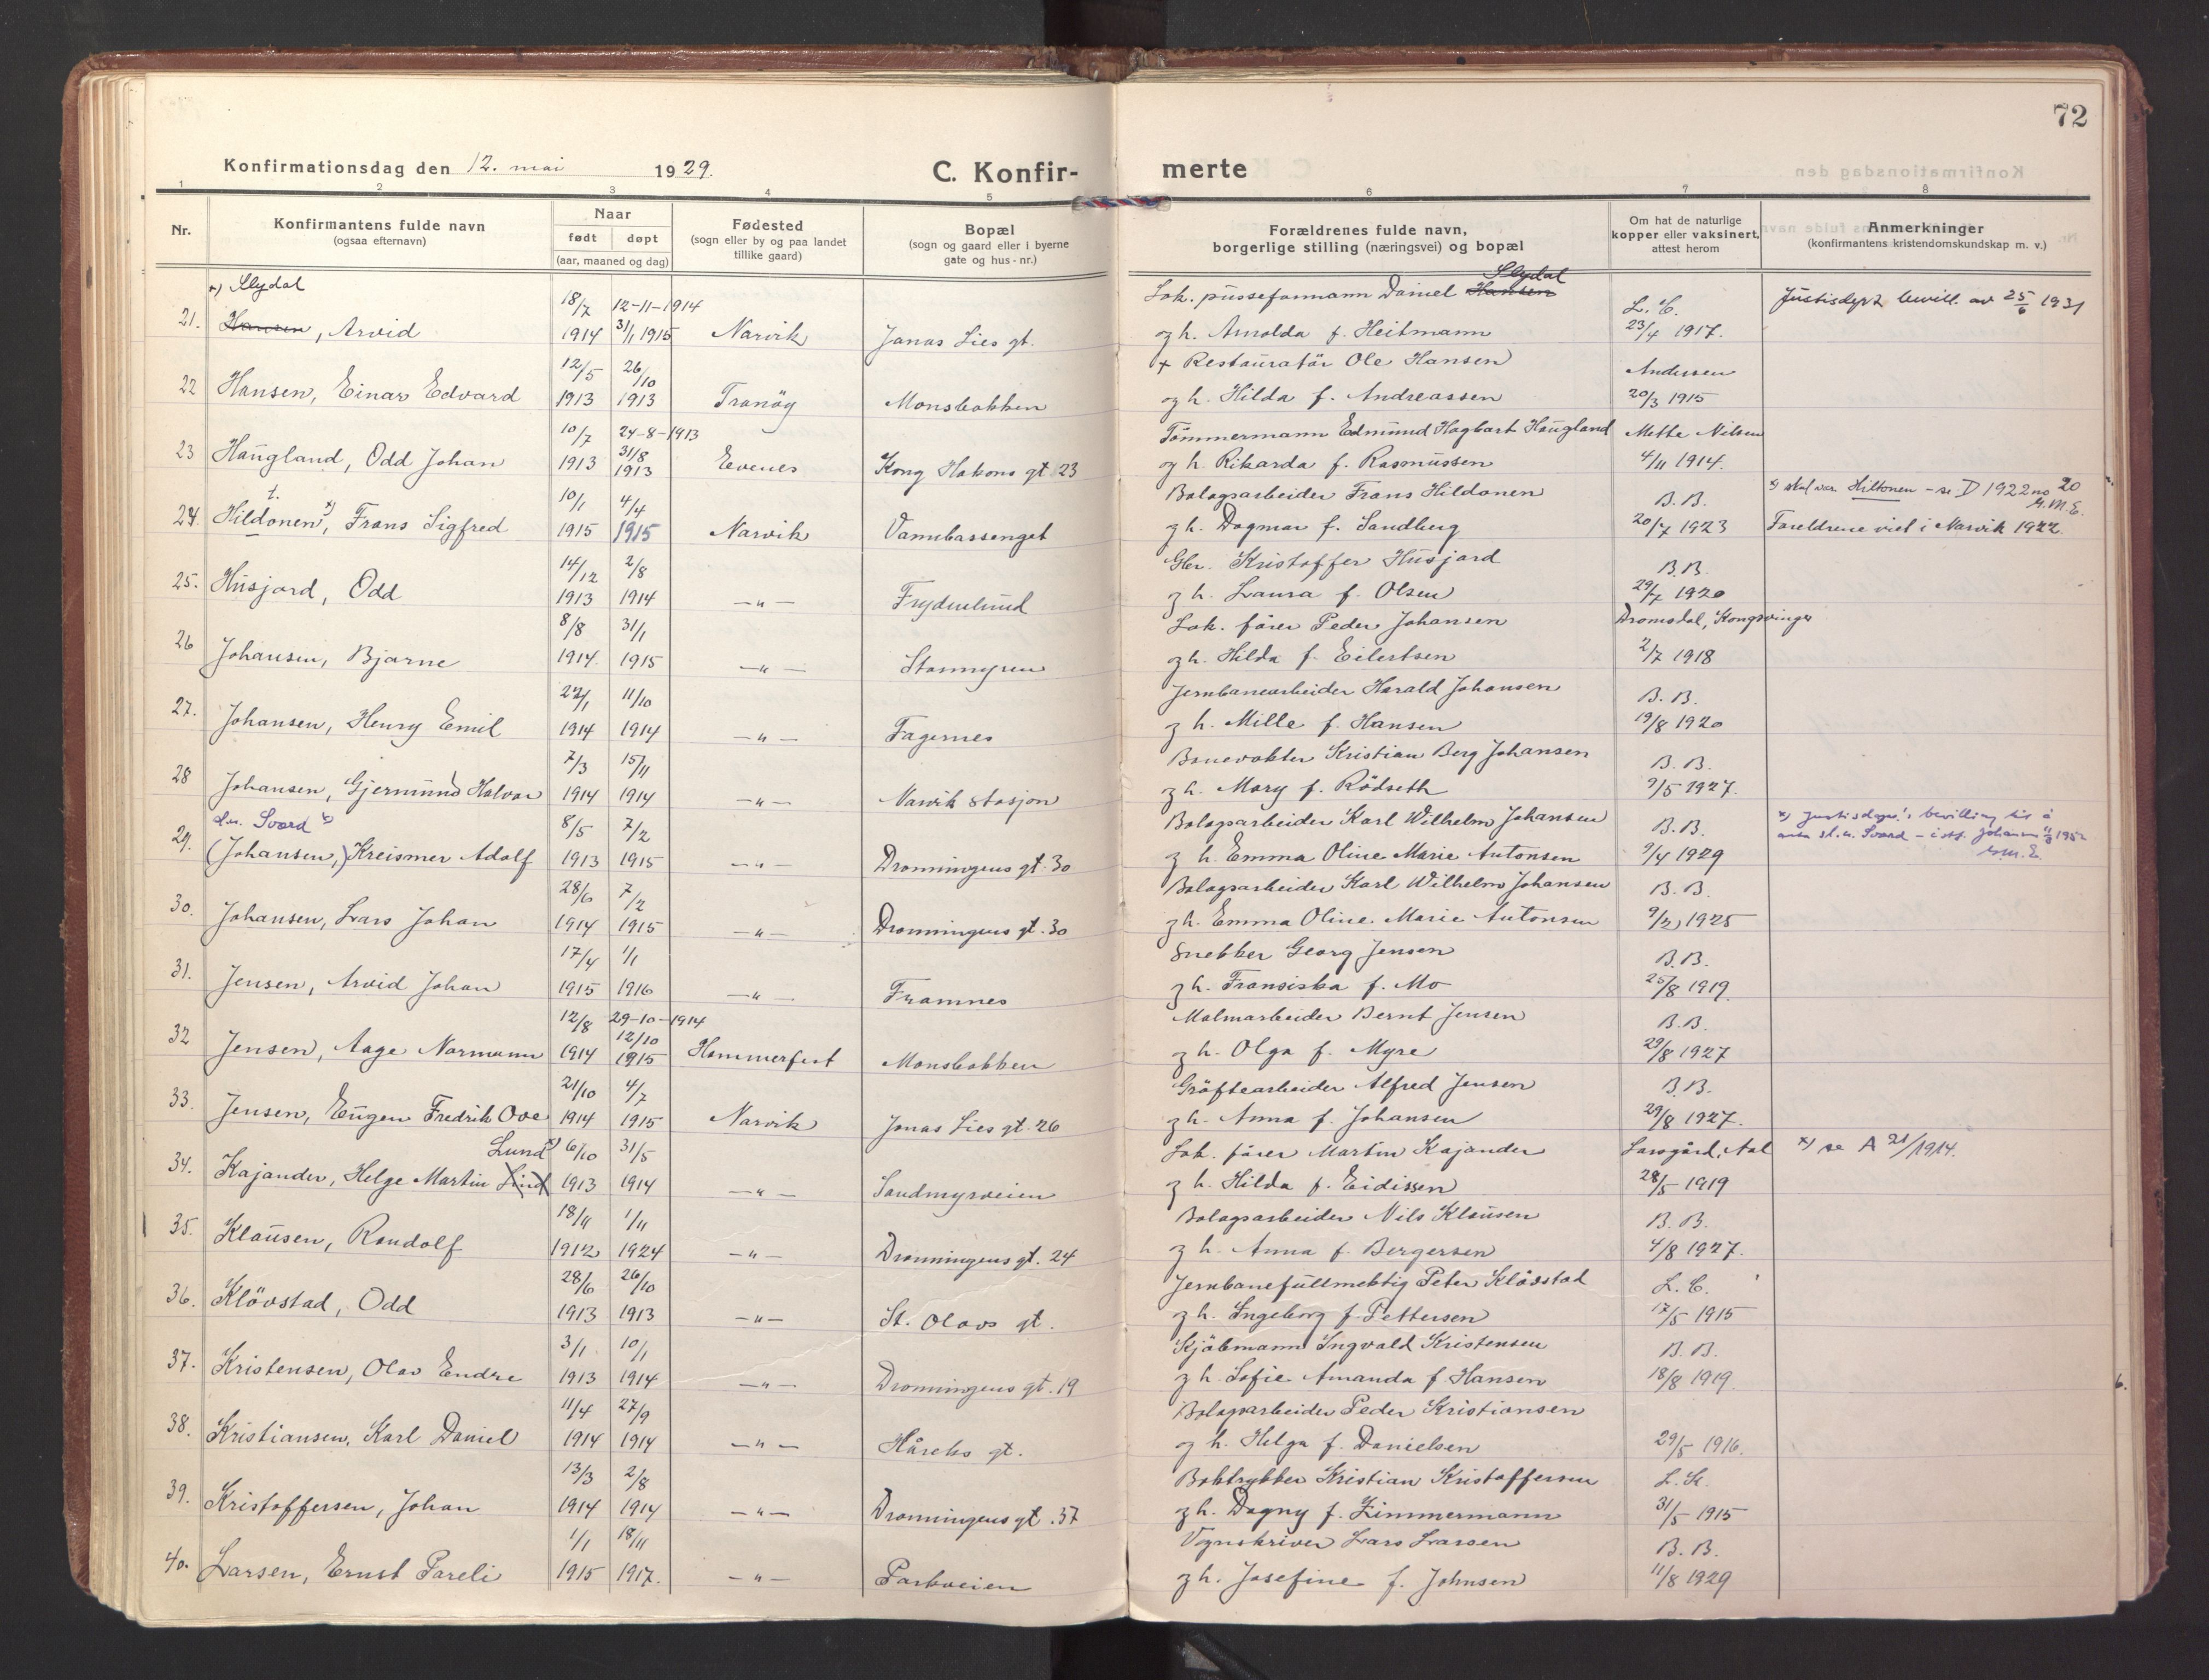 72
Konfirmationsdag den 12. mai 1929. C. Konfirmerte
1 2 3 4 5 6 7 8
Nr. | Konfirmantens fulde navn (ogsaa efternavn) | Naar født døpt (aar, maaned og dag) | Fødested (sogn eller by og paa landet tillike gaard) | Bopæl (sogn og gaard eller i byerne gate og hus-nr.) | Forældrenes fulde navn, borgerlige stilling (næringsvei) og bopæl | Om hat de naturlige kopper eller vaksinert, attest herom | Anmerkninger (konfirmantens kristendomskundskap m. v.)
x) Slydal 18/7 12-11-1914 Lok. pusseformann Daniel Hansen Slydal L. C. Justisdept bevill. av 25/6 1931
21. Hansen, Arvid 1914 31/1 1915 Narvik Jonas Lies gt. og h. Arnolda f. Heitmann 23/4 1917.
12/5 26/10 + Restauratør Ole Hansen Andersen
22 Hansen, Einar Edvard 1913 1913 Tranöy Monsbakken og h. Hilda f. Andreassen 20/3 1915
10/7 24-8-1913 Tömmermann Edmund Hagbart Haugland Mette Nilsen
23 Haugland, Odd Johan 1913 31/8 1913 Evenes Kong Hakons gt 23 og h. Rikarda f. Rasmussen 4/11 1914.
t. 10/1 4/4 Bolagsarbeider Frans Hildonen B. B. x) skal være Hiltonen - se D 1922 no 20 G.M.E.
24. Hildonen x), Frans Sigfred 1915 1915 Narvik Vannbassenget og h. Dagmar f. Sandberg 20/7 1923 Foreldrene viet i Narvik 1922.
14/12 2/8 Kristoffer Husjord B.B.
25. Husjord, Odd 1913 1914 -"- Frydenlund og h. Laura f. Olsen 29/7 1920
8/8 31/1 Lok. fører Peder Johansen Dromsdal, Kongsvinger
26 Johansen, Bjarne 1914. 1915 -"- Stormyren og h. Hilda f. Eilertsen 2/7 1918
22/1 11/10 Jernbanearbeider Harald Johansen B. B.
27. Johansen, Henry Emil 1914 1914 -"- Fagernes og h. Mille f. Hansen 19/8 1920
7/3 15/11 Banevokter Kristian Berg Johansen B. B.
28 Johansen, Gjermund Halvor 1914 1914 -"- Narvik stasjon og h. Mary f. Rödseth 9/5 1927.
Sl.n. Sværd x) 8/5 7/2 Bolagsarbeider Karl Wilhelm Johansen B. B. x) Justisdep.'s bevilling til å anta sl.n. Sværd - i st. f. Johansen 11/3 1952 G.M.E.
29. (Johansen,) Kreismer Adolf 1913 1915 -"- Dronningens gt. 30 og h. Emma Oline Marie Antonsen 9/4 1929
28/6 7/2 Bolagsarbeider Karl Wilhelm Johansen B. B.
30. Johansen, Lars Johan 1914 1915 -"- Dronningens gt. 30 og h. Emma Oline Marie Antonsen 9/2 1925
17/4 1/1 Snekker Georg Jensen B.B.
31. Jensen, Arvid Johan 1915 1916 -"- Framnes og h. Fransiska f. Mo 25/8 1919.
12/8 29-10-1914 Malmarbeider Bernt Jensen B.B.
32 Jensen, Aage Normann 1914 12/10 1915 Hammerfest Monsbakken og h. Olga f. Myre 29/8 1927
21/10 4/7 Gröftearbeider Alfred Jensen B.B.
33. Jensen, Eugen Fredrik Ove 1914 1915 Narvik Jonas Lies gt. 26 og h. Anna f. Johansen 29/8 1927.
Lund x) 6/10 31/5 Lok. fører Martin Kajander Larsgård, Aal x) se A 21/1914.
34. Kajander, Helge Martin Lind 1913 1914 -"- Sandmyrveien og h. Hilda f. Eidissen 28/5 1919
18/11 1/11 Bolagsarbeider Nils Klausen B. B.
35. Klausen, Randolf 1912 1924 -"- Dronningens gt. 24 og h. Anna f. Bergersen 4/8 1927.
28/6 26/10 Jernbanefullmektig Peter Klövstad L. C.
36. Klövstad, Odd 1913 1913 -"- St. Olavs gt. og h. Ingeborg f. Pettersen 17/5 1915
3/1 10/1 Kjöbmann Ingvald Kristensen B. B.
37. Kristensen, Olav Endre 1913 1914 -"- Dronningens gt. 19 og h. Sofie Amanda f. Hansen 18/8 1919.
11/4 27/9 Bolagsarbeider Peder Kristiansen
38. Kristiansen, Karl Daniel 1914 1914 -"- Håreks gt. og h. Helga f. Danielsen 29/5 1916.
13/3 2/8 Boktrykker Kristian Kristoffersen L. K.
39. Kristoffersen, Johan 1914 1914 -"- Dronningens gt. 37 og h. Dagny f. Zimmermann 31/5 1915
1/1 18/11 Vognskriver Lars Larsen B. B.
40. Larsen, Ernst Pareli 1915 1917. -"- Parkveien og h. Josefine f. Johnsen 11/8 1929